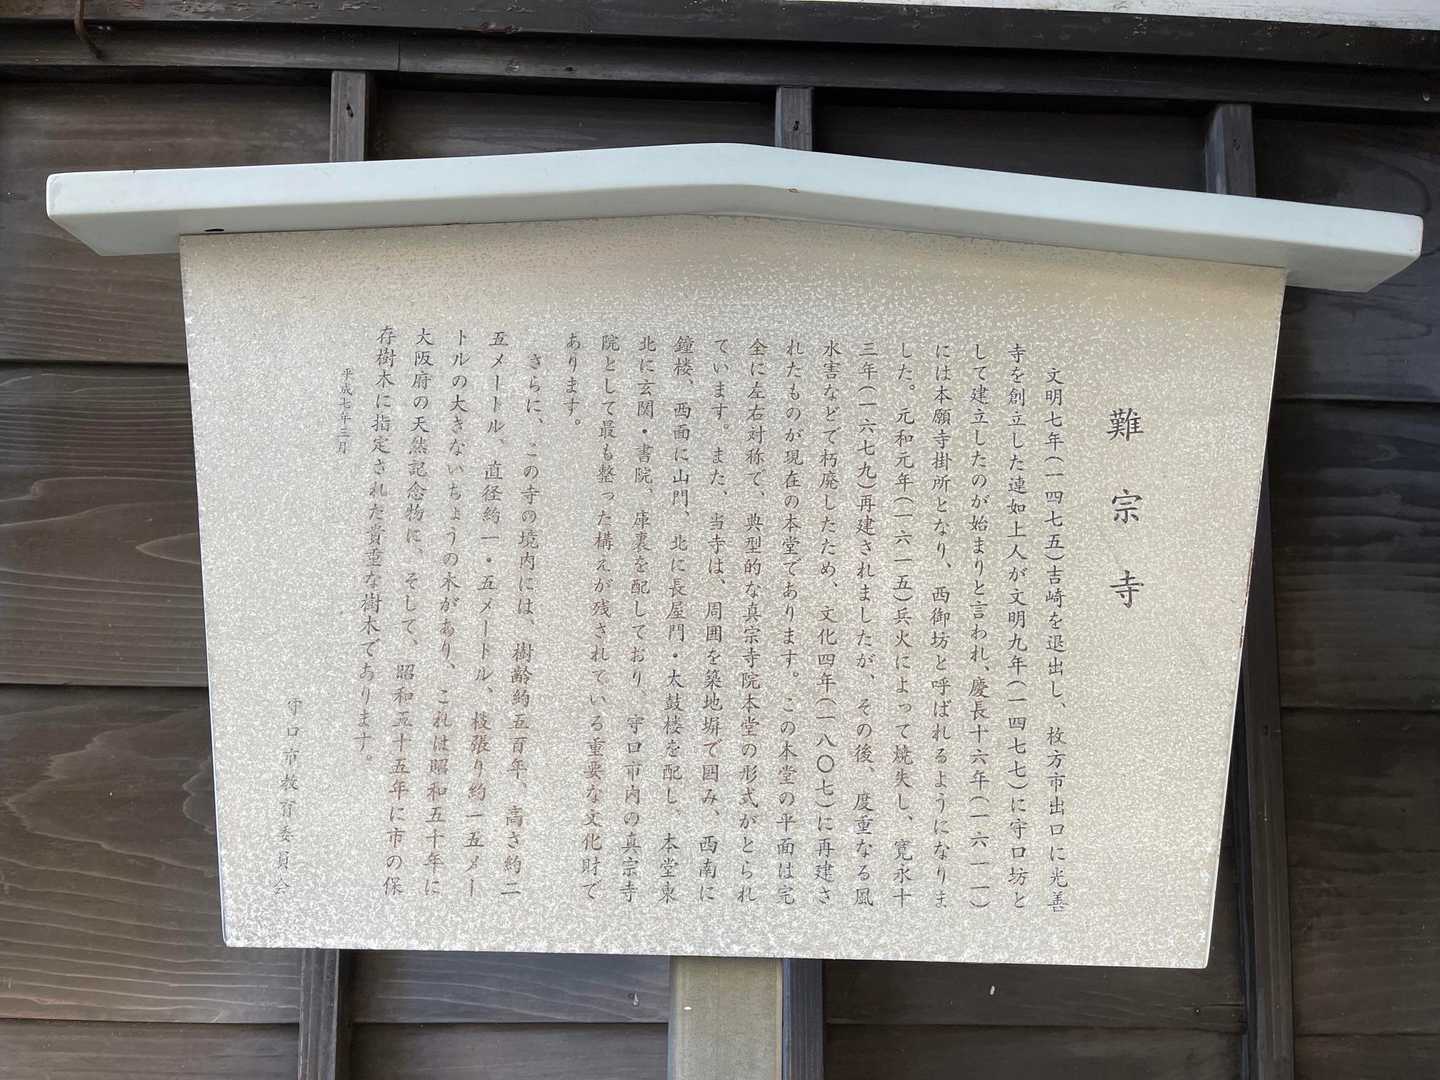 難宗寺
文明七年(一四七五)吉崎を退出し、枚方市出口に光善
寺を創立した連如上人が文明九年(一四七七)に守口坊と
して建立したのが始まりと言われ、慶長十六年(一六一一)
には本願寺掛所となり、西御坊と呼ばれるようになりま
した。元和元年(一六一五)兵火によって焼失し、寛永十
三年(一六七九)再建されましたが、その後、度重なる風
水害などで朽廃したため、文化四年(一八〇七)に再建さ
れたものが現在の本堂であります。この本堂の平面は完
全に左右対称で、典型的な真宗寺院本堂の形式がとられ
ています。また、当寺は、周囲を築地塀で囲み、西南に
鐘楼、西面に山門、北に長屋門・太鼓楼を配し、本堂東
北に玄関・書院、庫裏を配しており、守口市内の真宗寺
院として最も整った構えが残されている重要な文化財で
あります。
さらに、この寺の境内には、樹齢約五百年、高さ約二
五メートル、直径約一・五メートル、枝張り約一五メー
トルの大きないちょうの木があり、これは昭和五十年に
大阪府の天然記念物に、そして、昭和五十五年に市の保
存樹木に指定された貴重な樹木であります。
平成七年三月
守口市教育委員会